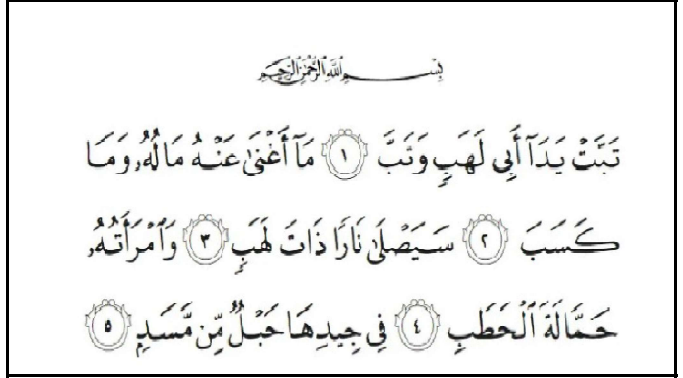 بِسْمِ ٱللَّهِ ٱلرَّحْمَٰنِ ٱلرَّحِيمِ
تَبَّتْ يَدَآ أَبِى لَهَبٍ وَتَبَّ ١ مَآ أَغْنَىٰ عَنْهُ مَالُهُۥ وَمَا
كَسَبَ ٢ سَيَصْلَىٰ نَارًا ذَاتَ لَهَبٍ ٣ وَٱمْرَأَتُهُۥ
حَمَّالَةَ ٱلْحَطَبِ ٤ فِى جِيدِهَا حَبْلٌ مِّن مَّسَدٍ ٥